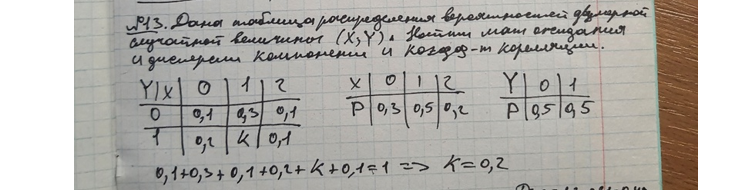 №13. Дана таблица распределения вероятностей двумерной
случайной величины (X,Y). Найти мат ожидания
и дисперсии компонент и коэфф-т корреляции.
Y|X 0 1 2 X 0 1 2 Y 0 1
0 0,1 0,3 0,1 P 0,3 0,5 0,2 P 0,5 0,5
1 0,2 K 0,1
0,1+0,3+0,1+0,2+K+0,1=1 => K=0,2